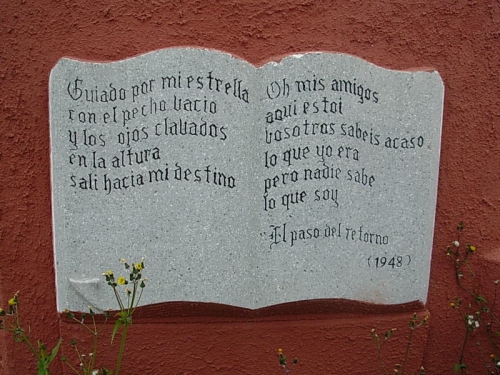 Guiado por mi estrella
con el pecho vacio
y los ojos clavados
en la altura
sali hacia mi destino
Oh mis amigos
aqui estoi
vosotros sabeis acaso
lo que yo era
pero nadie sabe
lo que soy
"El paso del retorno
(1948)